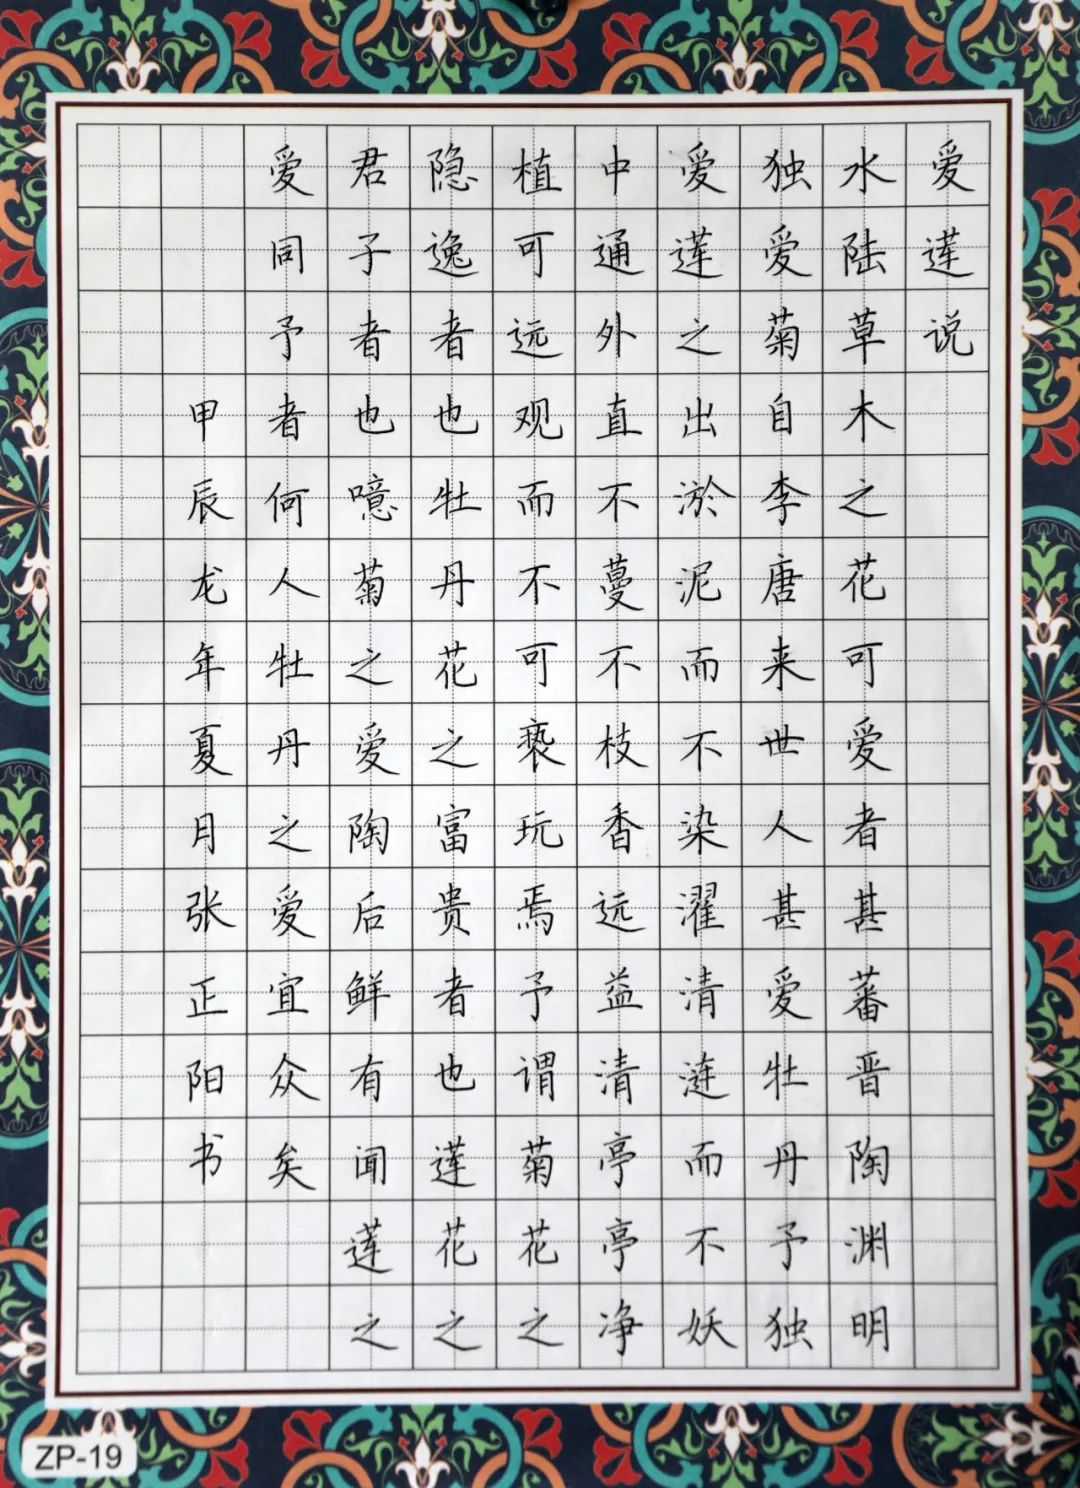 爱莲说
水陆草木之花可爱者甚蕃晋陶渊明
独爱菊自李唐来世人甚爱牡丹予独
爱莲之出淤泥而不染濯清涟而不妖
中通外直不蔓不枝香远益清亭亭净
植可远观而不可亵玩焉予谓菊花之
隐逸者也牡丹花之富贵者也莲花之
君子者也噫菊之爱陶后鲜有闻莲之
爱同予者何人牡丹之爱宜众矣
甲辰龙年夏月张正阳书
ZP-19